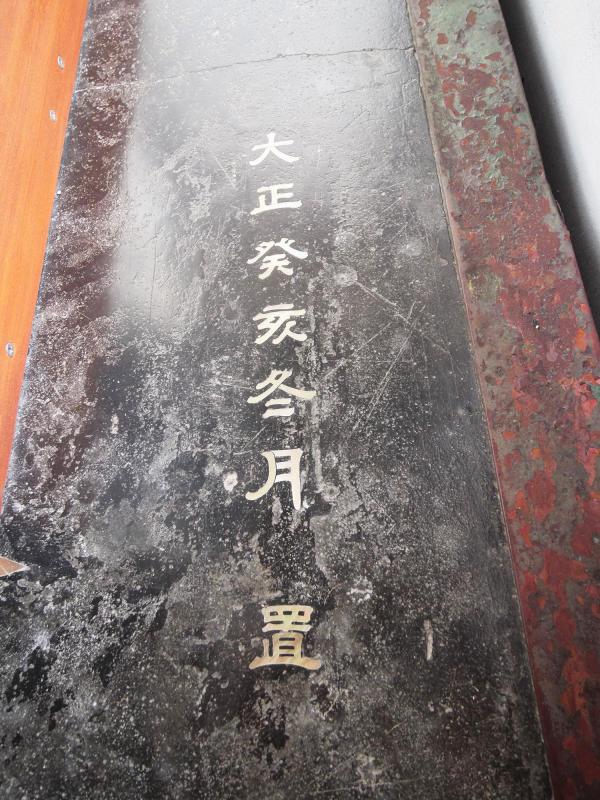 大正癸亥冬月 置